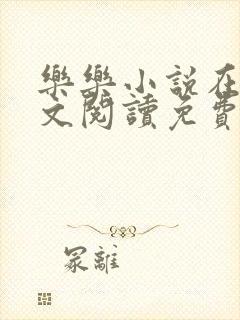 樂樂小說在
文閱讀免費
冢離